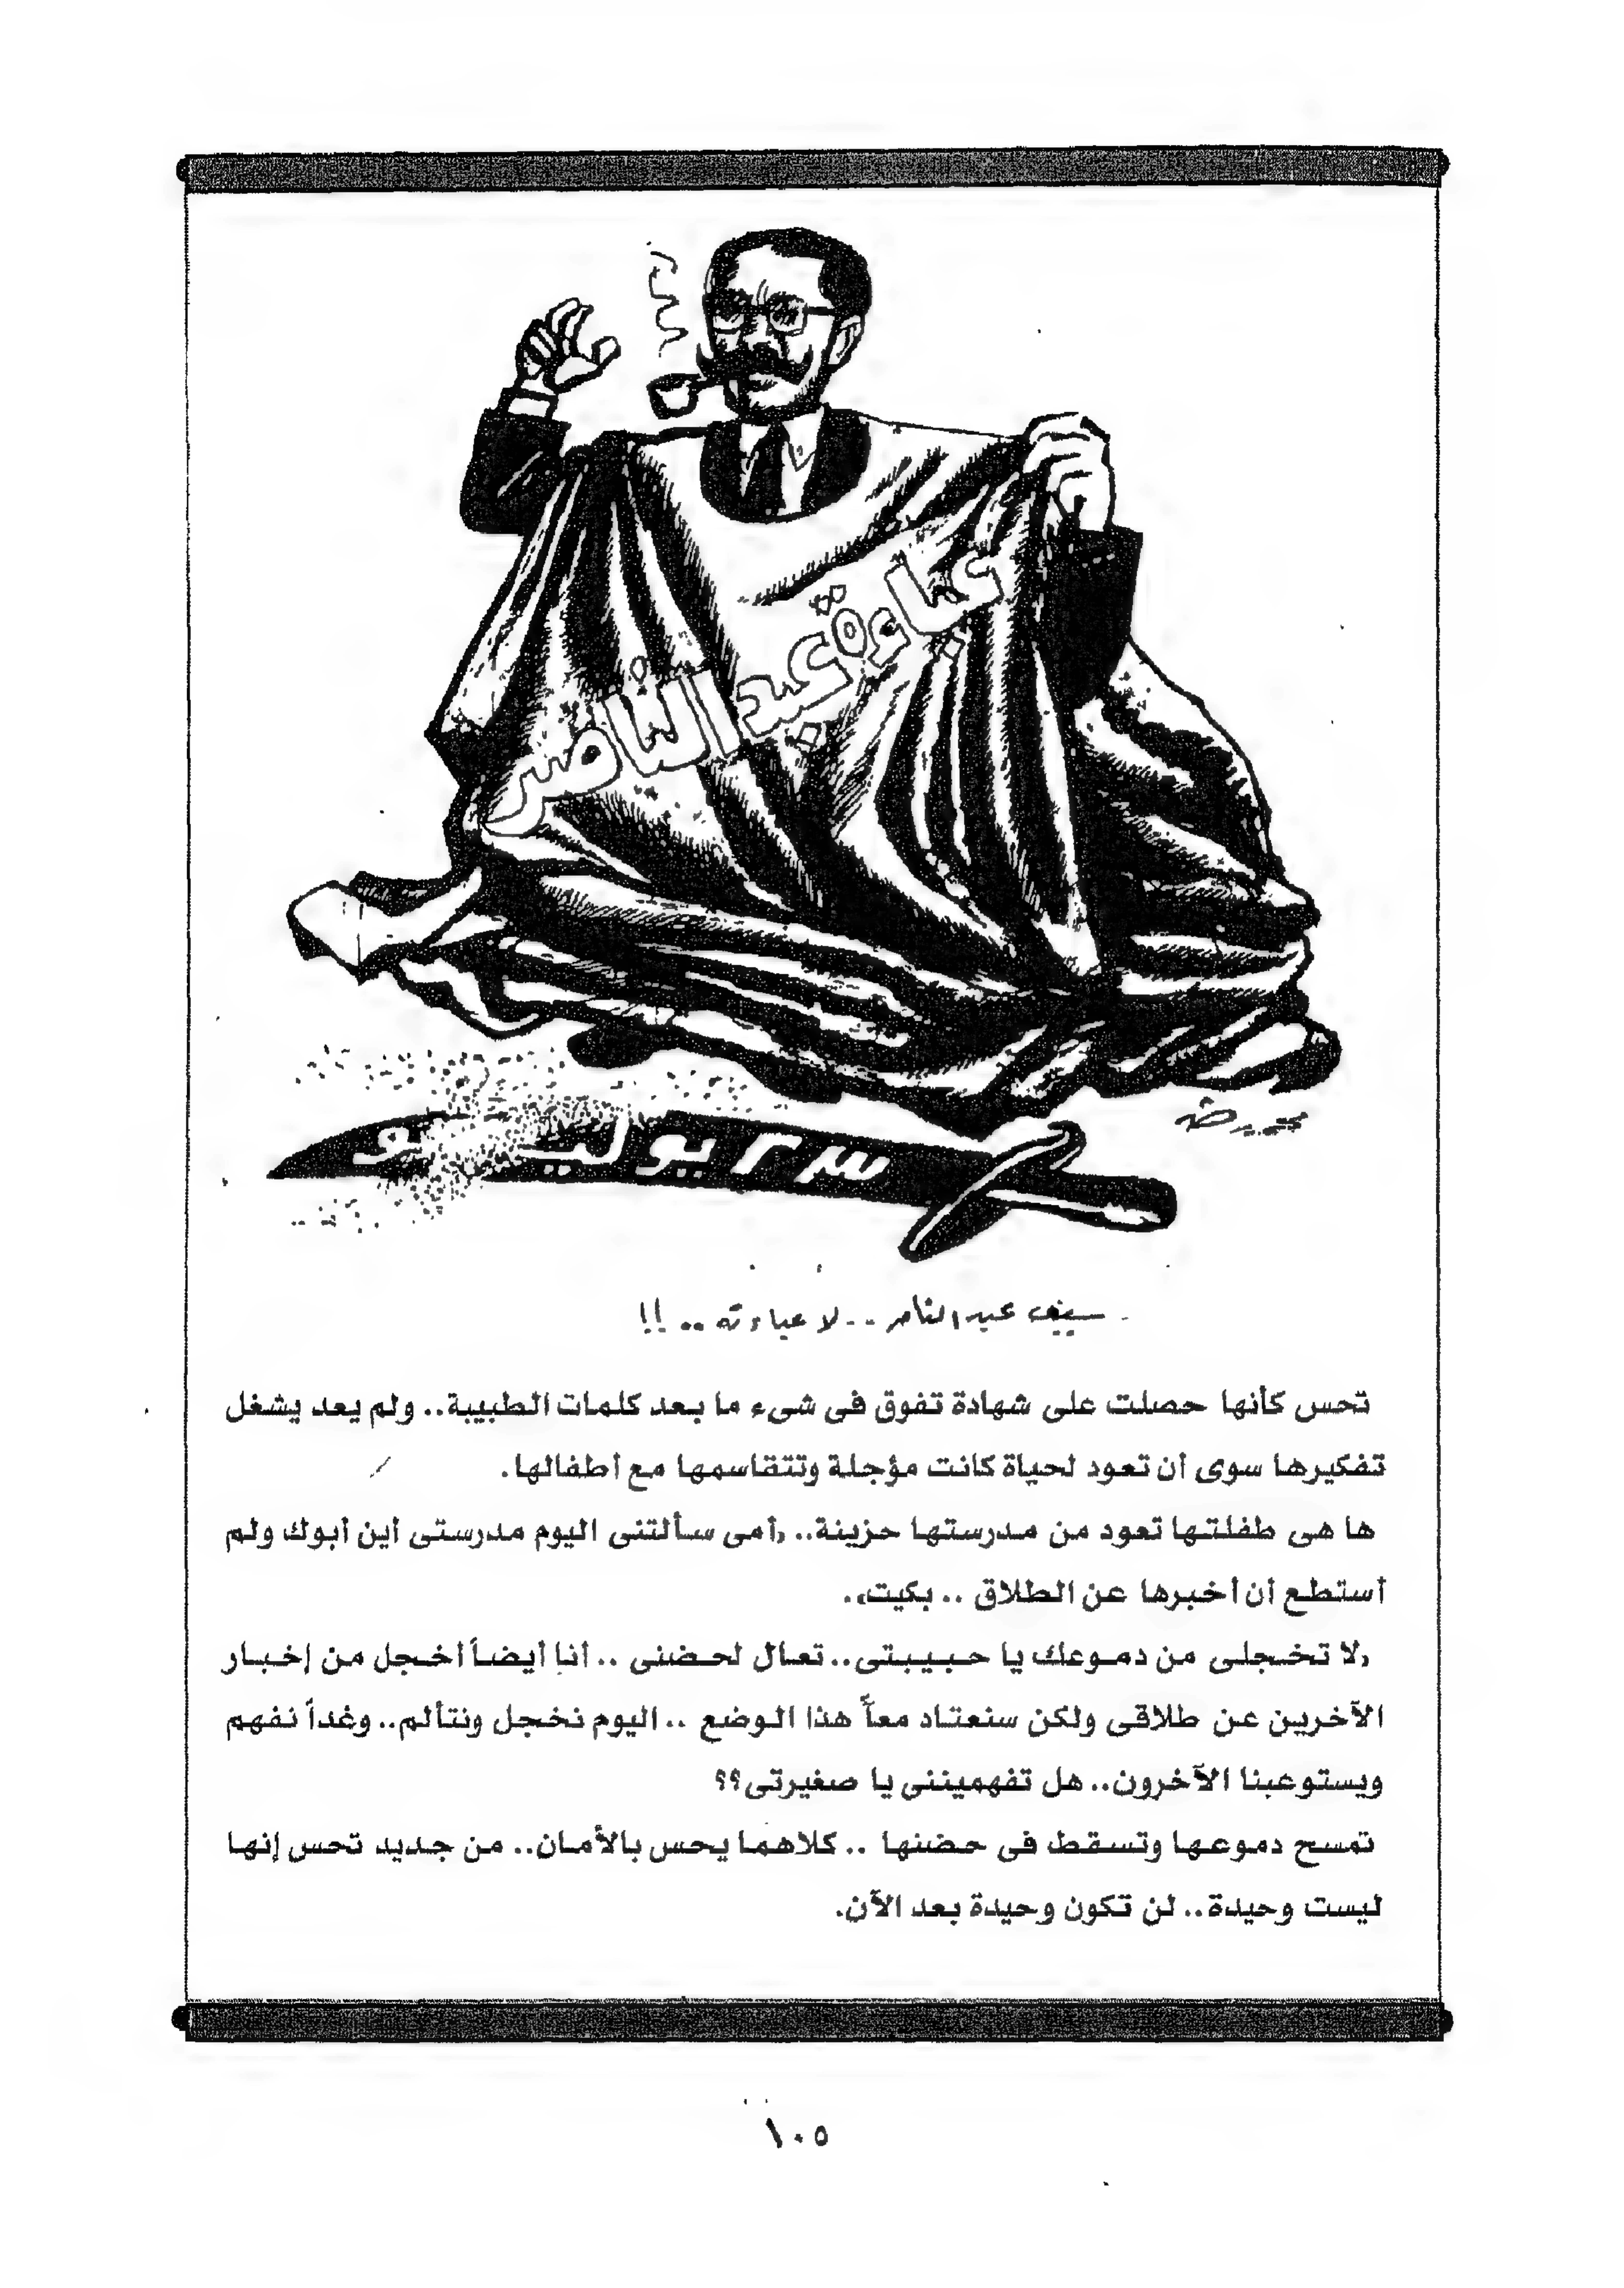 عباءة عبد الناصر
٢٣ يوليو
محمد رضا
سيف عبد الناصر .. لا عباءته .. !!
تحس كأنها حصلت على شهادة تفوق فى شىء ما بعد كلمات الطبيبة.. ولم يعد يشغل
تفكيرها سوى أن تعود لحياة كانت مؤجلة وتتقاسمها مع أطفالها.
ها هى طفلتها تعود من مدرستها حزينة.. «أمى سألتنى اليوم مدرستى أين أبوك ولم
أستطع أن أخبرها عن الطلاق .. بكيت».
«لا تخجلى من دموعك يا حبيبتى.. تعال لحضنى .. أنا أيضاً أخجل من إخبار
الآخرين عن طلاقى ولكن سنعتاد معاً هذا الوضع .. اليوم نخجل ونتألم.. وغداً نفهم
ويستوعبنا الآخرون.. هل تفهميننى يا صغيرتى؟؟
تمسح دموعها وتسقط فى حضنها .. كلاهما يحس بالأمان.. من جديد تحس إنها
ليست وحيدة.. لن تكون وحيدة بعد الآن.
١٠٥